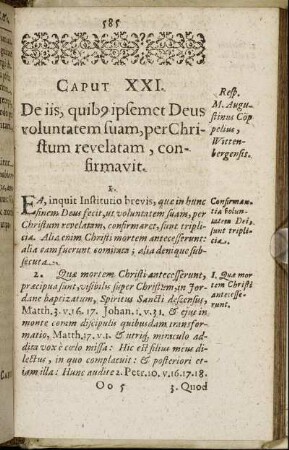 585
CAPUT XXI.
De iis, quibꝰ ipsemet Deus
voluntatem suam, per Chri-
stum revelatam, con-
firmavit.
Resp.
M. Augu-
stinus Cöp
pelius,
Witten-
bergensis.
1.
EA, inquit Institutio brevis, quæ in hunc
finem Deus fecit, ut voluntatem suam, per
Christum revelatam, confirmaret, sunt tripli-
cia. Alia enim Christi mortem antecesserunt:
alia eam fuerunt comitata; alia denique sub-
secuta.
Confirman-
tia volun-
tatem Dei,
sunt tripli-
cia.
2. Quæ mortem Christi antecesserunt,
præcipua sunt, visibilis super Christum, in Jor-
dane baptizatum, Spiritus Sancti descensus,
Matth. 3. v. 16. 17. Johan. 1. v. 31. & ejus in
monte coram discipulis quibusdam transfor-
matio, Matth. 17. v. 1. & utriq; miraculo ad-
dita vox è cœlo missa: Hic est filius meus di-
lectus, in quo complacuit: & posteriori et-
iam illa: Hunc audite 2. Petr. 10. v. 16. 17. 18.
1. Quæ mor-
tem Christi
antecesse-
runt.
Oo 5
3. Quod